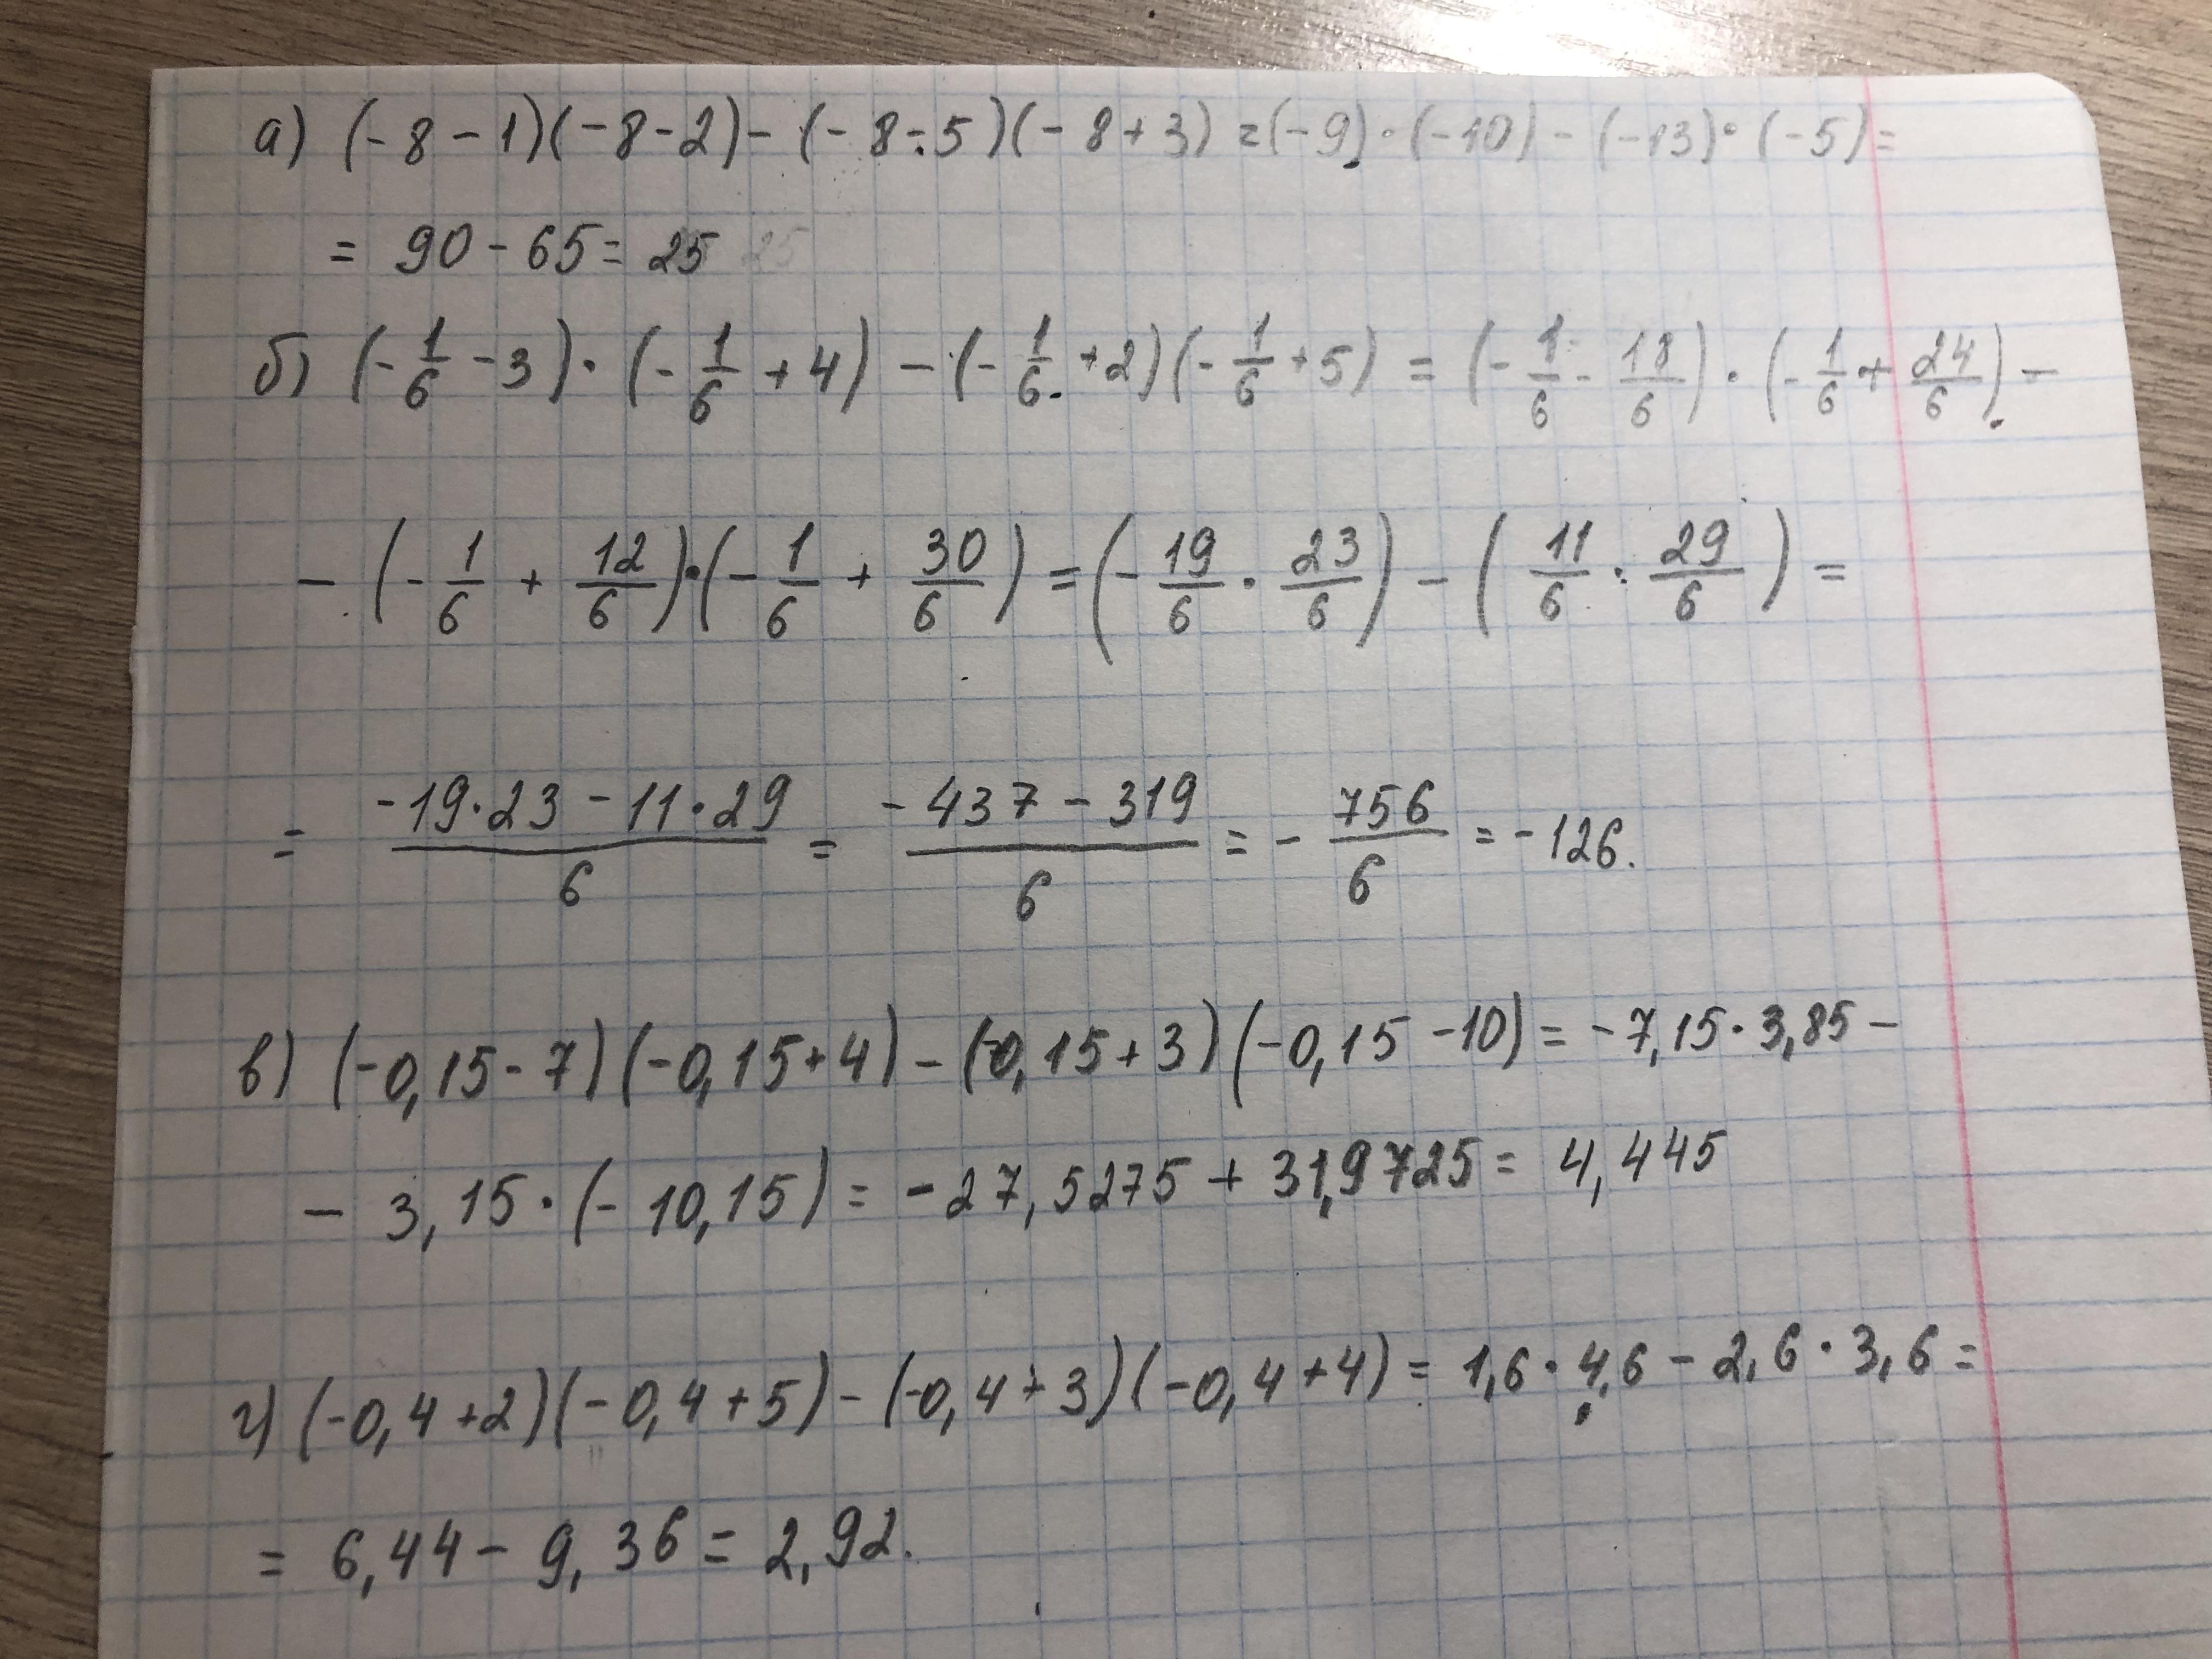 а) (-8-1)(-8-2)-(-8-5)(-8+3)=(-9)·(-10)-(-13)·(-5)=
= 90-65= 25
б) (-1/6-3)·(-1/6+4)-(-1/6+2)(-1/6+5)=(-1/6-18/6)·(-1/6+24/6)-
-(-1/6+12/6)·(-1/6+30/6)=(-19/6·23/6)-(11/6·29/6)=
= (-19·23-11·29)/6 = (-437-319)/6 = -756/6 = -126.
в) (-0,15-7)(-0,15+4)-(-0,15+3)(-0,15-10)=-7,15·3,85-
- 3,15·(-10,15)=-27,5275+31,9725= 4,445
г) (-0,4+2)(-0,4+5)-(-0,4+3)(-0,4+4)= 1,6·4,6-2,6·3,6=
= 6,44-9,36= 2,92.